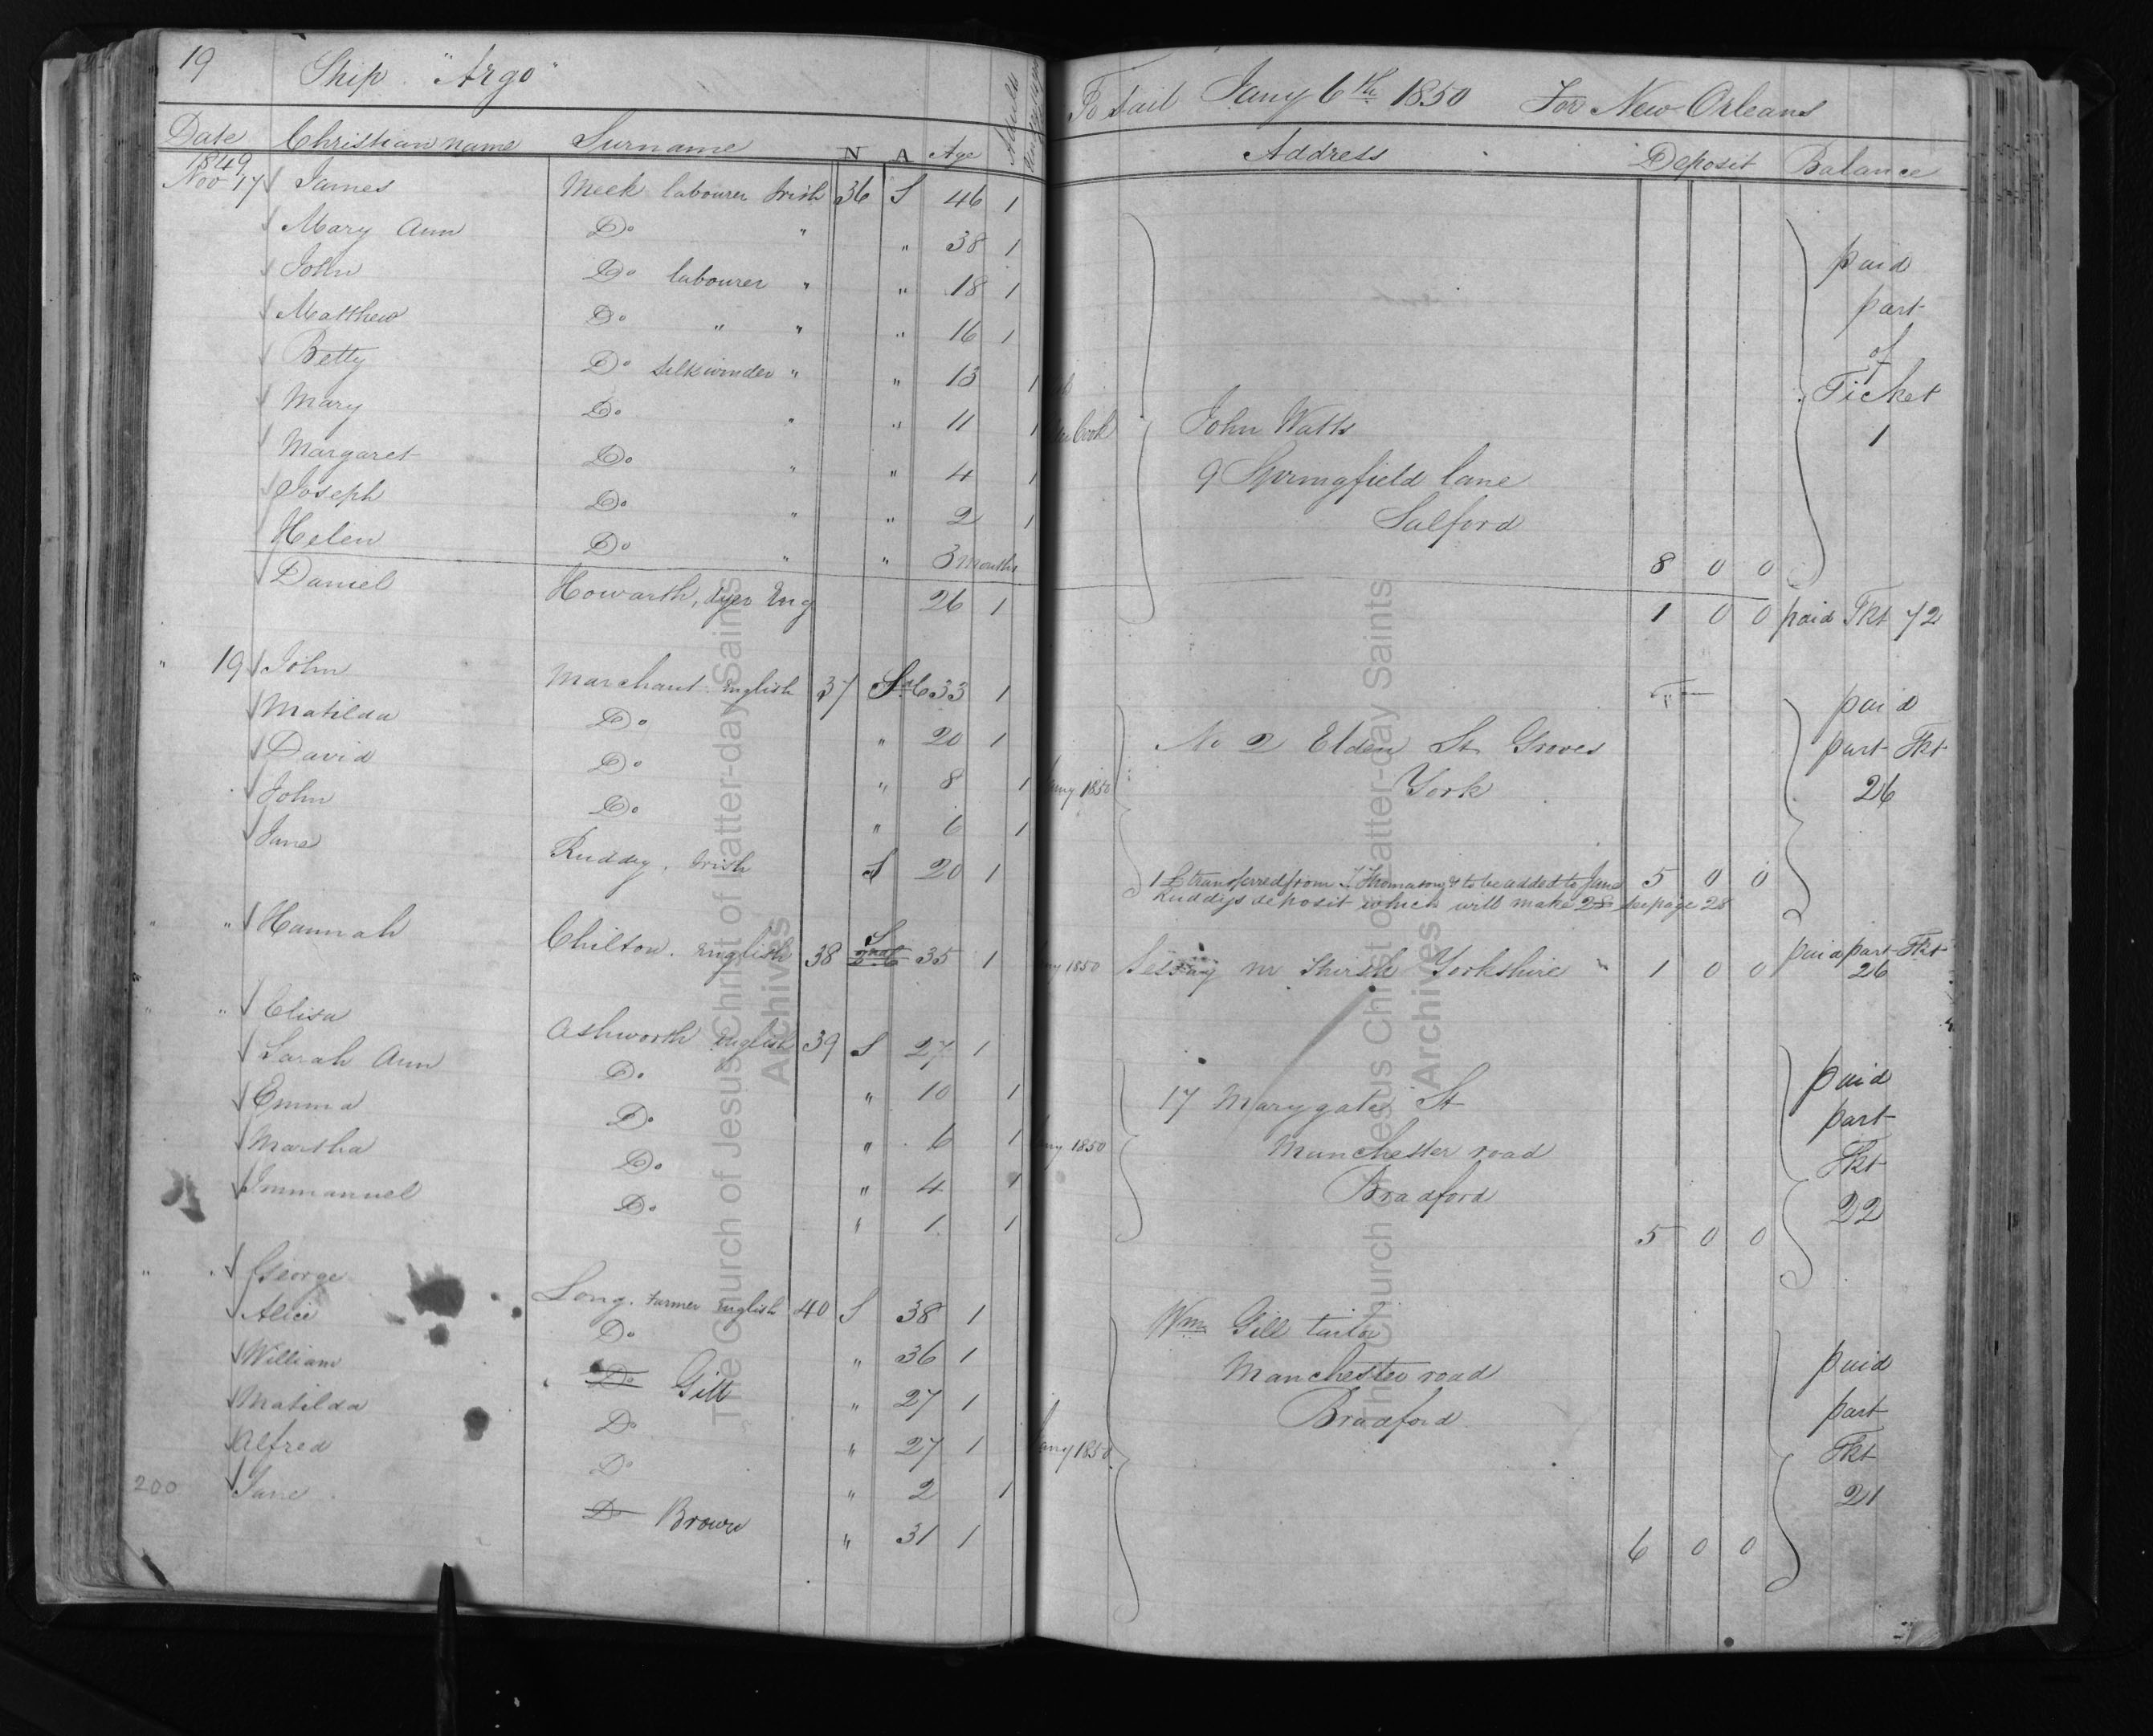 19 Ship "Argo" To Sail Jany 6th 1850 For New Orleans
Date Christian name Surname N A Age Adults Address Deposit Balance
1849
Nov 17 James Meek labourer Irish 36 S 46 1
Mary Ann Do " " 38 1 paid
John Do labourer " " 18 1 part
Matthew Do " " " 16 1 of
Betty Do silkwinder " " 13 1 Ticket
Mary Do " " 11 1 John Watts 1
Margaret Do " " 4 1 9 Springfield lane
Joseph Do " " 2 1 Salford
Helen Do " " 3 months 8 0 0
Daniel Howarth, dyer Eng 26 1 1 0 0 paid Tkt 72
" 19 John Marchant English 37 33 1 paid
Matilda Do " 20 1 No 2 Elden St Groves part Tkt
David Do " 8 1 Jany 1850 York 26
John Do " 6 1
Jane Ruddy. Irish S 20 1 5 0 0
1£ transferred from J Thomason & to be added to Jane
Ruddys deposit which will make 2£ see page 28
" " Hannah Chilton. English 38 S 35 1 1850 nr Thirsk Yorkshire 1 0 0 paid part Tkt
26
" " Elisa Ashworth English 39 S 27 1 paid
Sarah Ann Do " 10 1 17 Marygate St part
Emma Do " 6 1 1850 Manchester road Tkt
Martha Do " 4 1 Bradford 22
Immanuel Do " 1 1 5 0 0
" " George Long. Farmer English 40 S 38 1 Wm Gill
Alice Do " 36 1 Manchester road paid
William Do Gill " 27 1 Bradford part
Matilda Do " 27 1 Jany 1850 Tkt
Alfred Do " 2 1 21
200 Jane Do Brown " 31 1 6 0 0
The Church of Jesus Christ of Latter-day Saints
Archives
The Church of Jesus Christ of Latter-day Saints
Archives